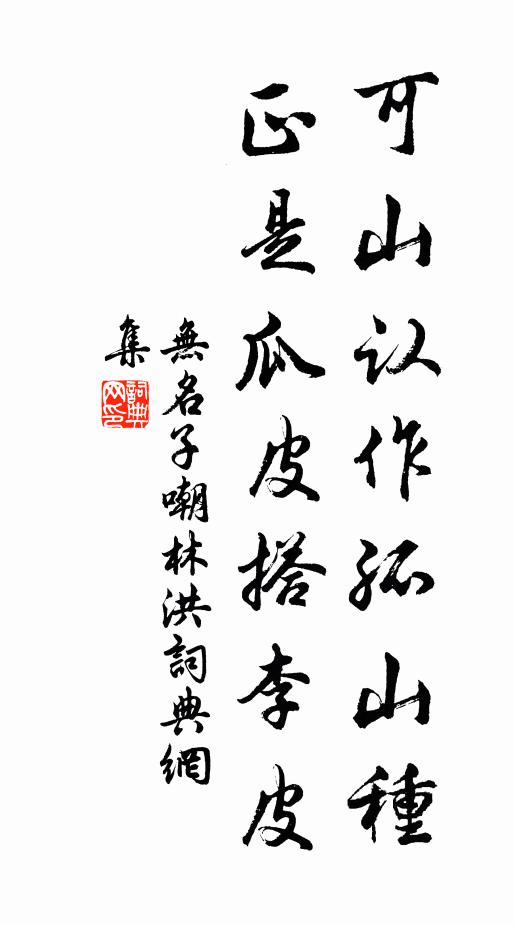 可山认作孤山種
正是瓜皮搭李皮
無名子嘲林洪詞典網
集
詞典网印